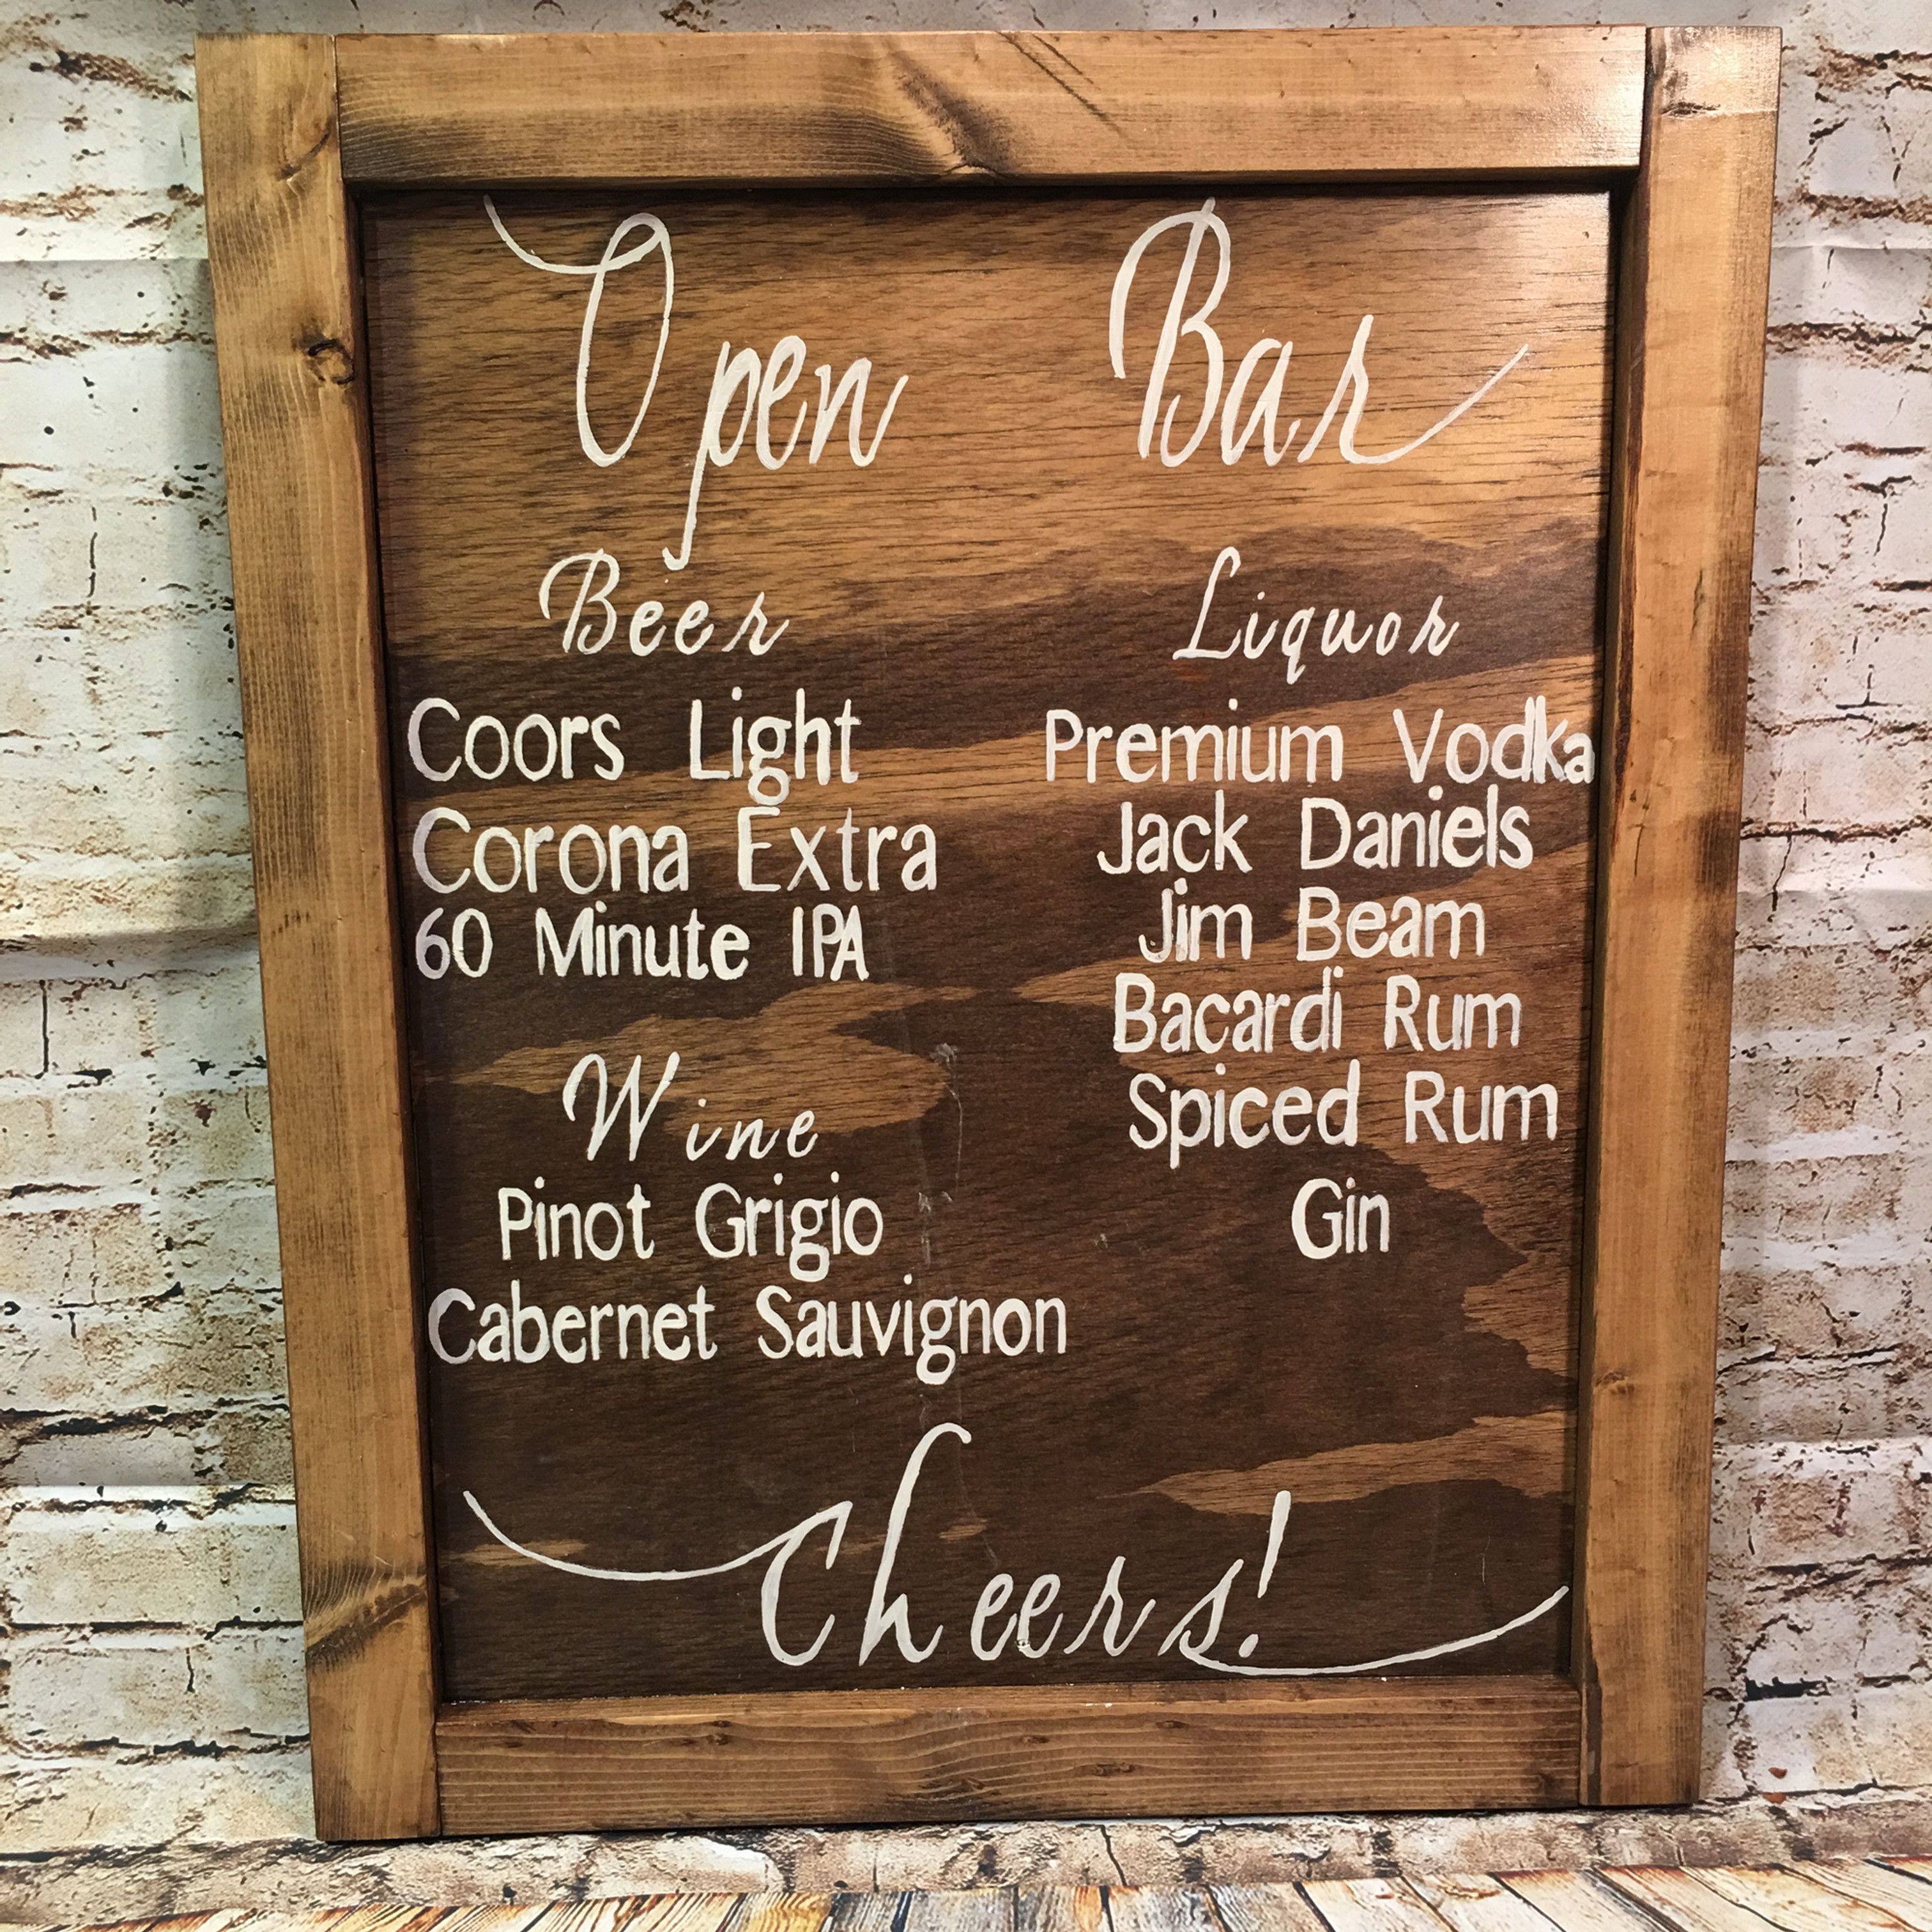 Open Bar
Beer
Coors Light
Corona Extra
60 Minute IPA
Wine
Pinot Grigio
Cabernet Sauvignon
Liquor
Premium Vodka
Jack Daniels
Jim Beam
Bacardi Rum
Spiced Rum
Gin
Cheers!